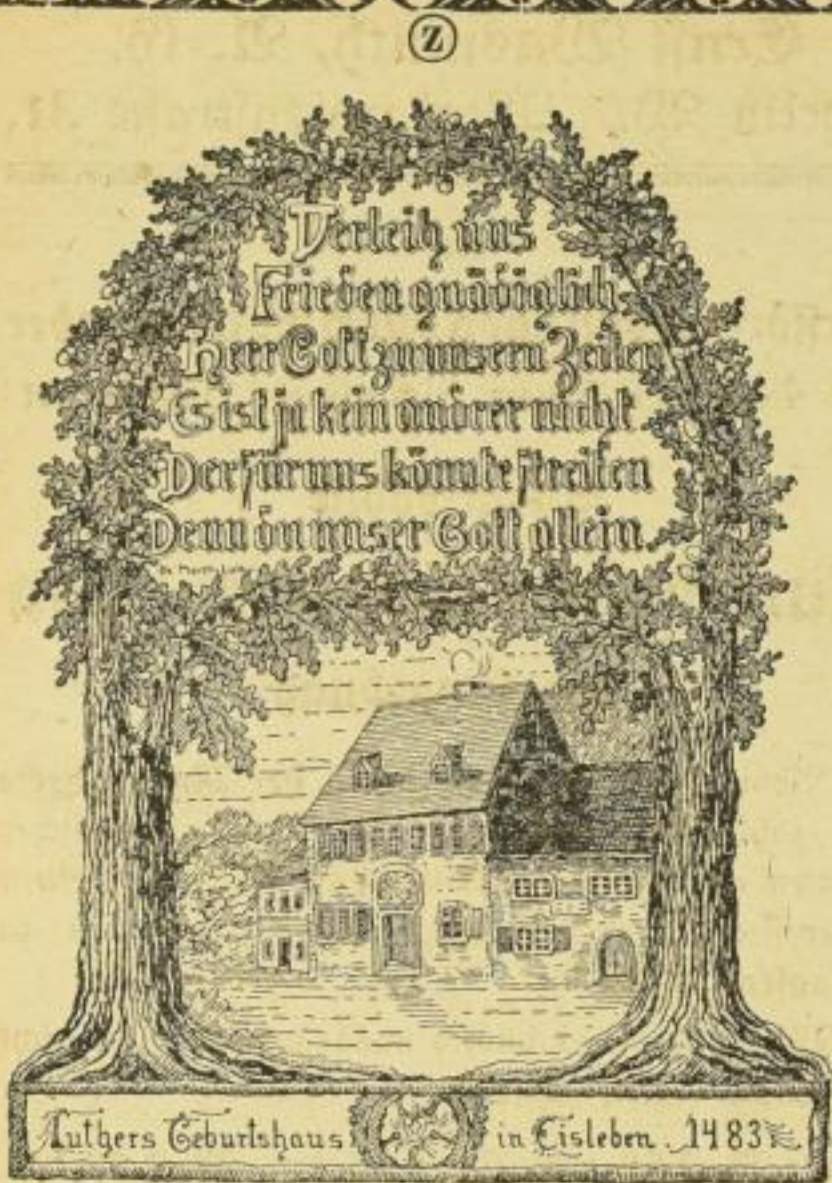 Z
Verleih uns
Frieden gnädiglich
Herr Gott zu unsern Zeiten
Es ist ja kein andrer nicht
Der für uns könnte streiten
Denn du unser Gott allein.
Dr. Martin Luth
Luthers Geburtshaus in Eisleben. 1483